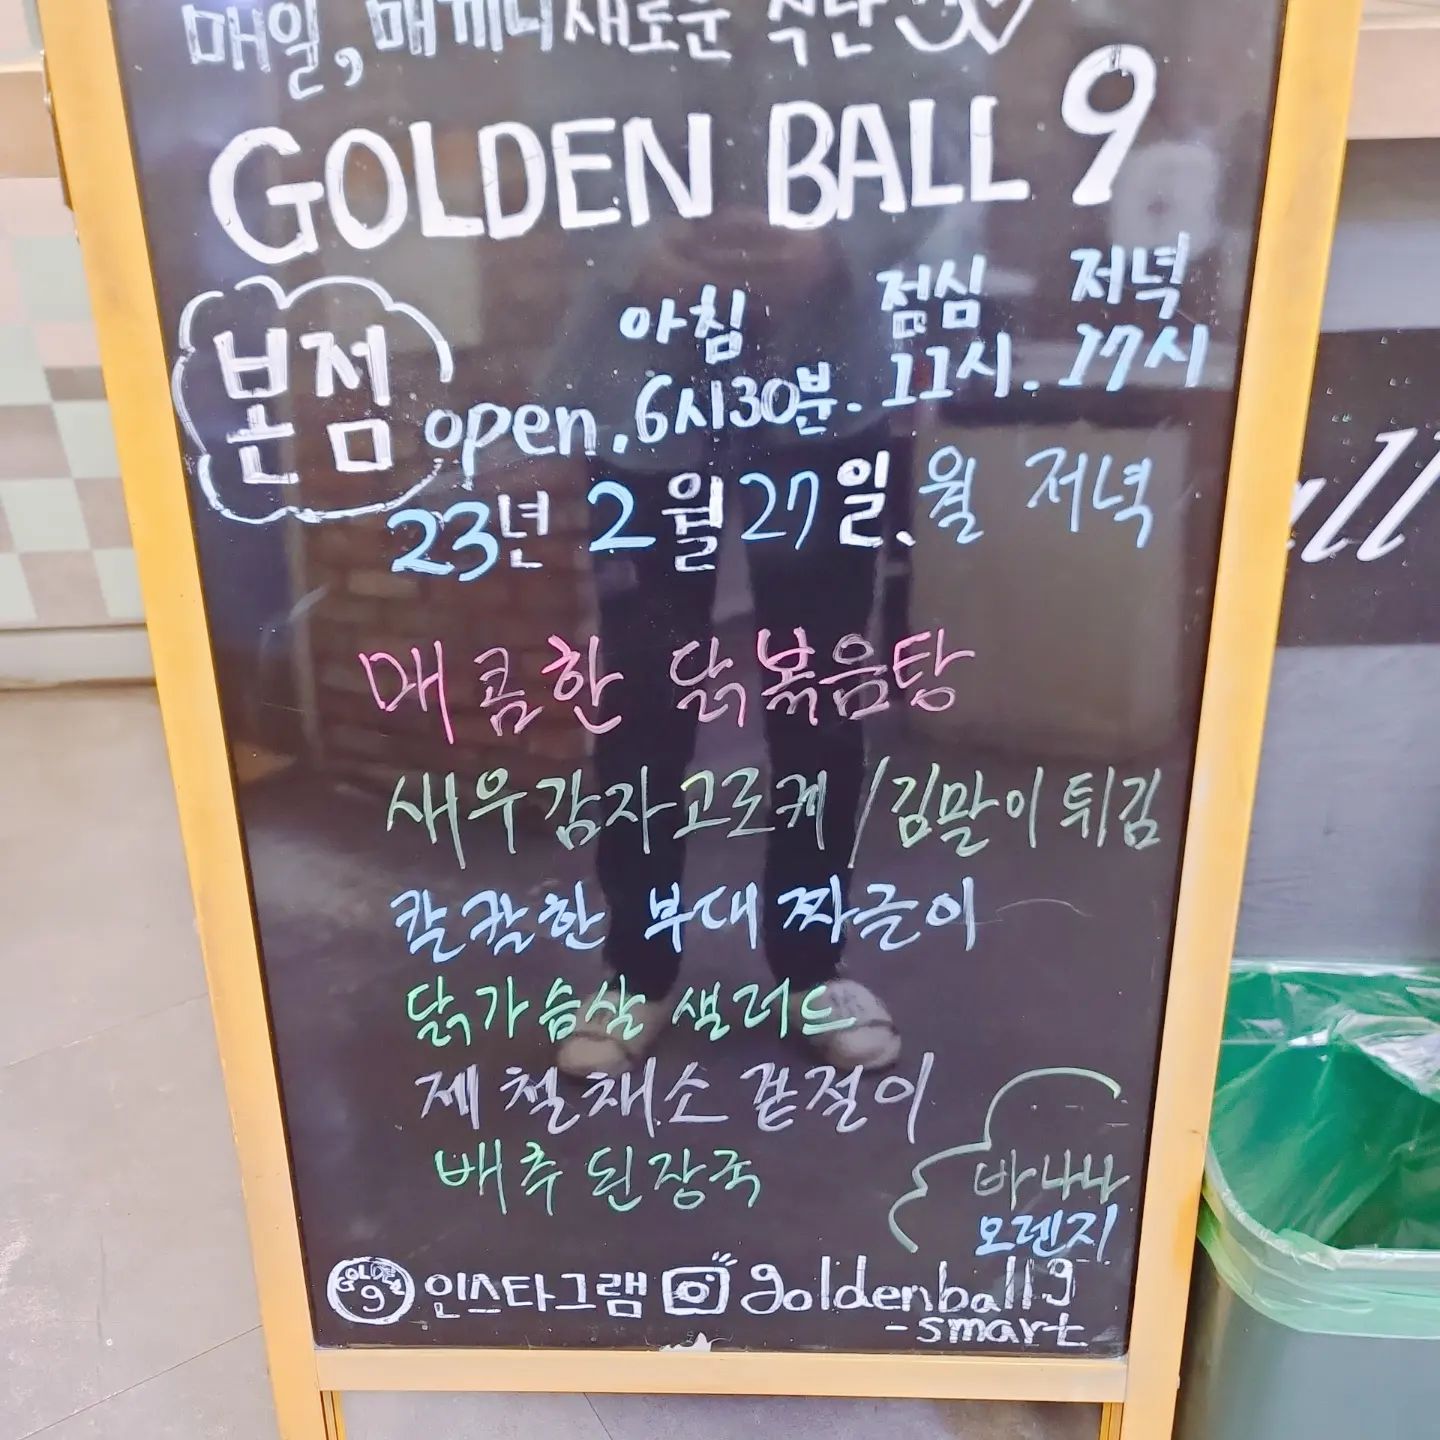 매일, 매끼니 새로운 식단
GOLDEN BALL 9
본점
아침 점심 저녁
open. 6시30분. 11시. 17시
23년 2월 27일. 월 저녁
매콤한 닭볶음탕
새우감자고로케 / 김말이튀김
칼칼한 부대짜글이
닭가슴살 샐러드
제철채소 겉절이
배추된장국
바나나
오렌지
GOLDEN 9 인스타그램 goldenball9
-smart
all